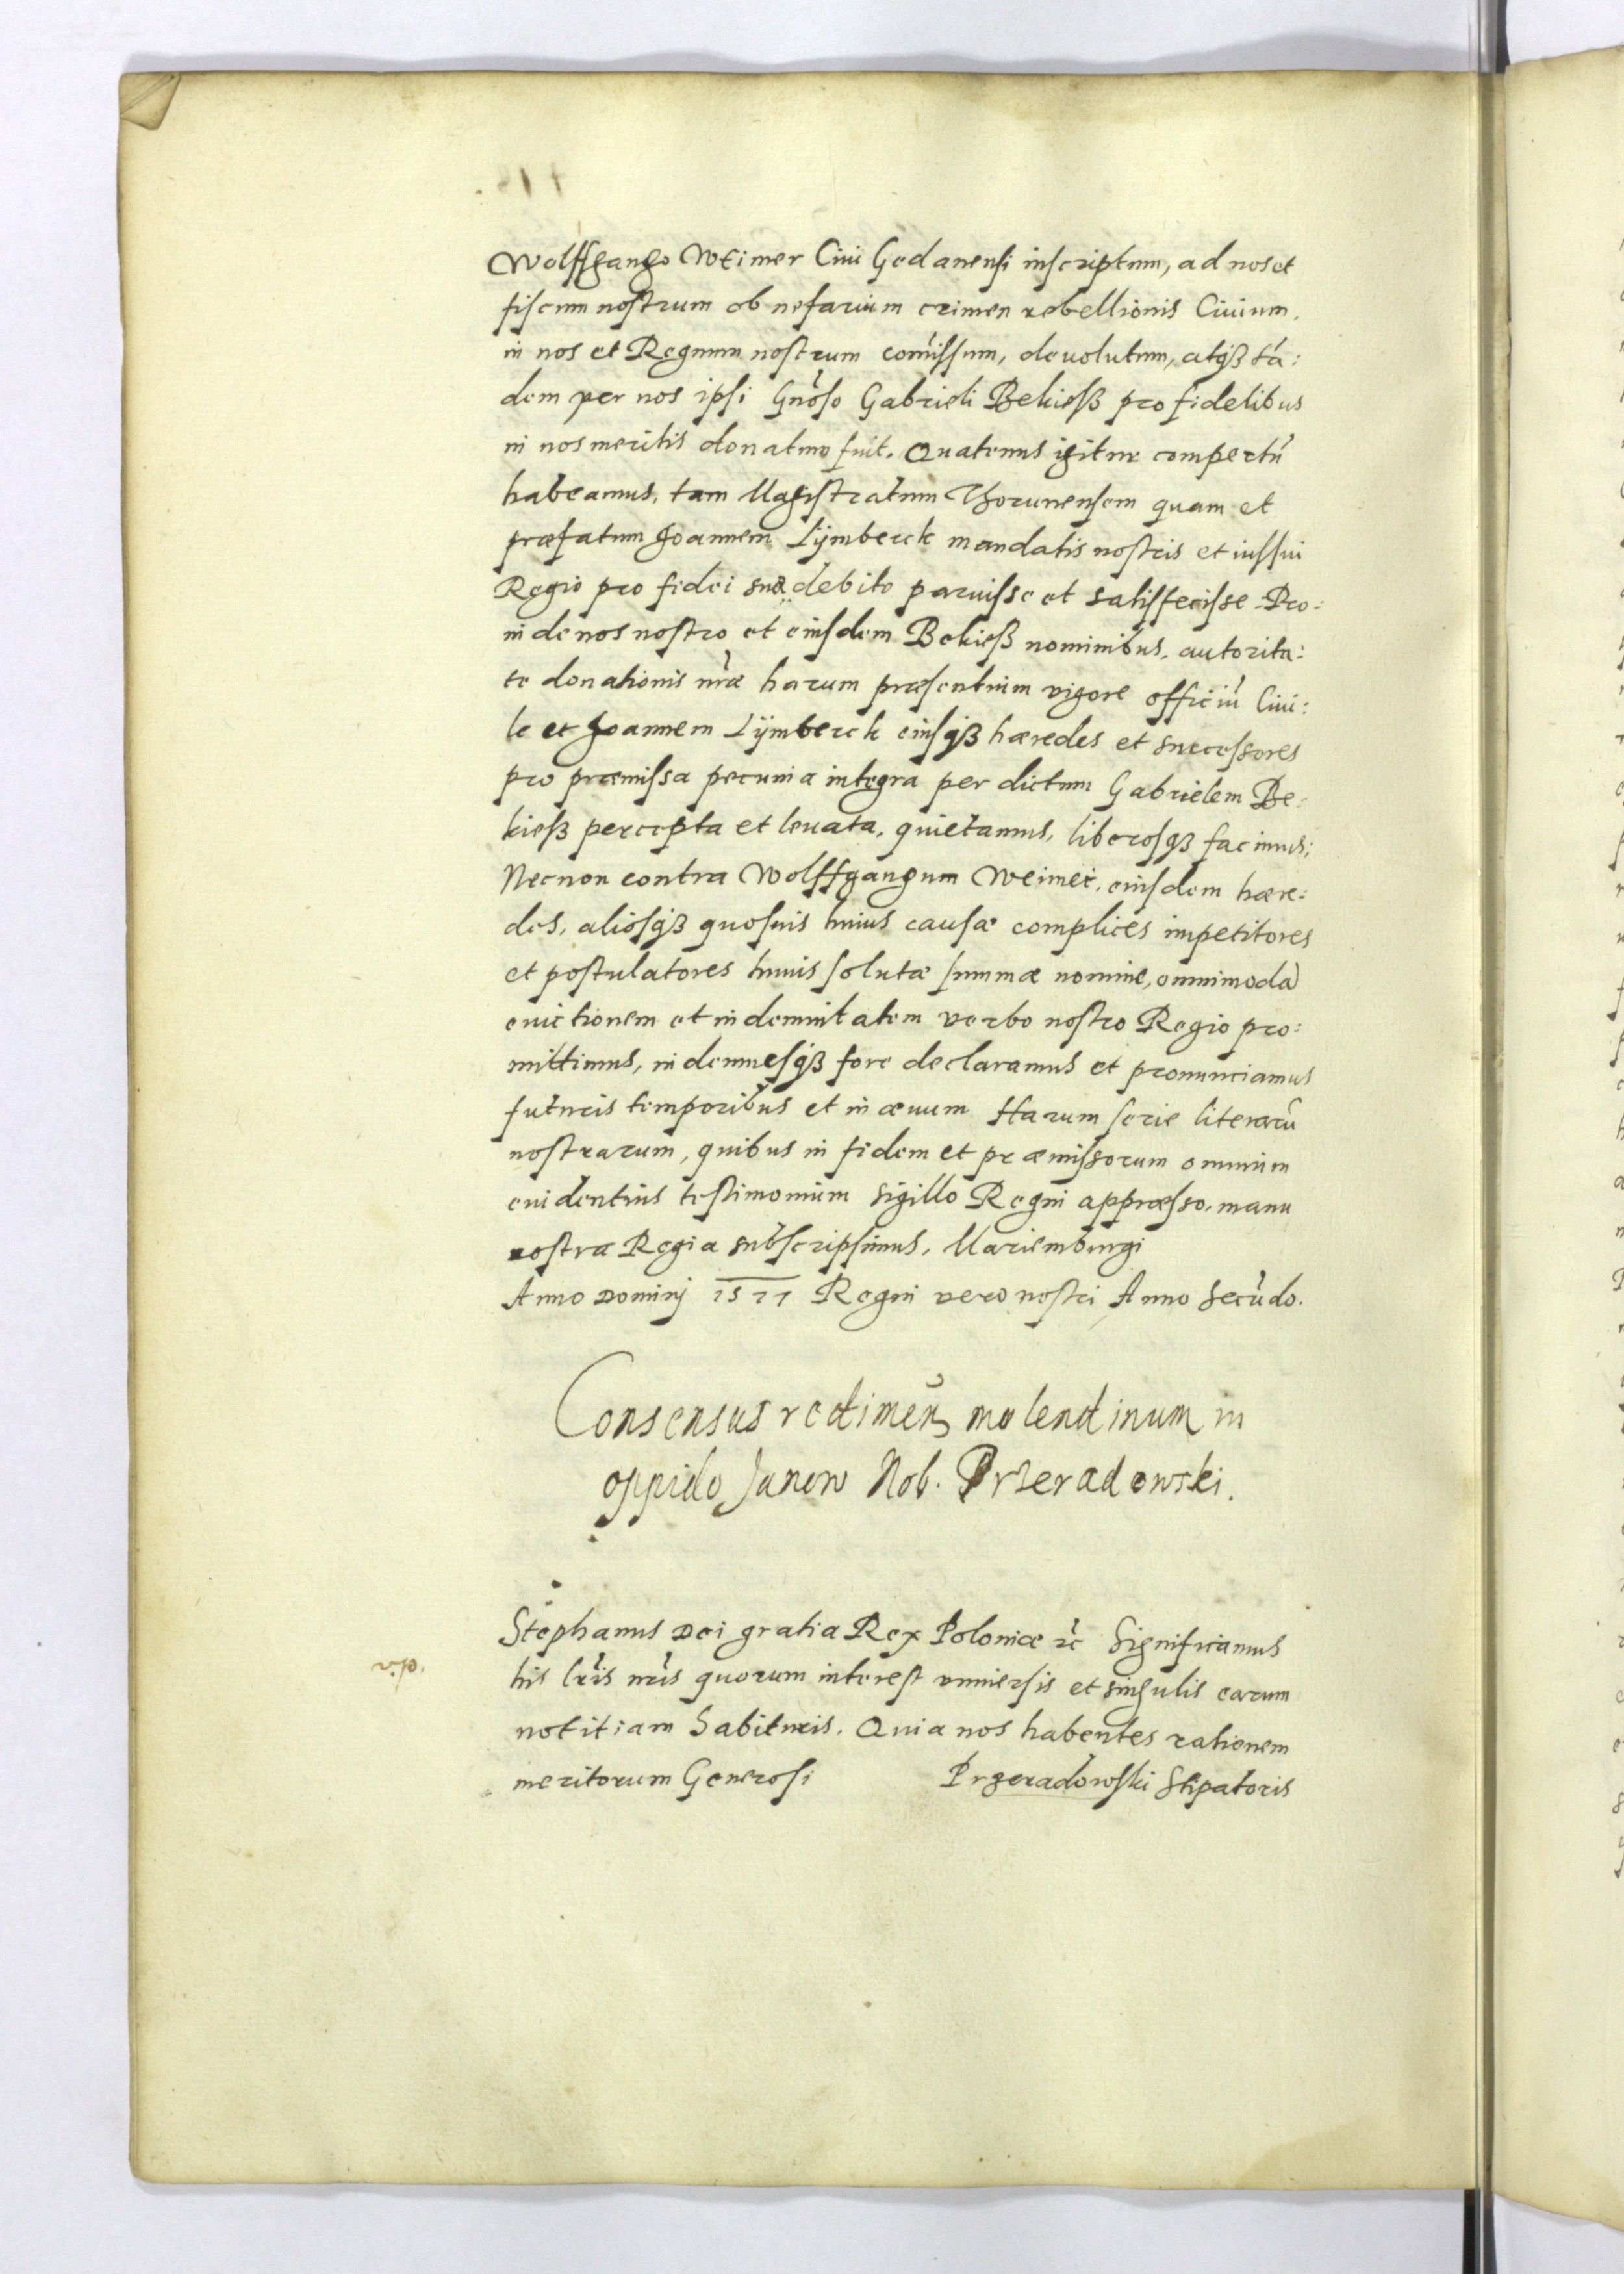 Wolffgango Weimer Ciui Gedanensi inscriptum, ad nos et
fiscum nostrum ob nefarium crimen rebellionis Ciuium,
in nos et Regnum nostrum comissum, deuolutum, atqȝ tā:
dem per nos ipsi Gnōso Gabrieli Bekieß pro fidelibus
in nos meritis donatum fuit. Quatenus igitur compertū
habeamus, tam Magistratum Thorunensem quam et
præfatum Joannem Lÿmberck mandatis nostris et iussui
Regio pro fidei suæ debito paruisse et satisfecisse. Pro:
inde nos nostro et eiusdem Bekieß nominibus, autorita:
te donationis nræ harum præsentium vigore officiū Ciui:
le et Joannem Lÿmberck eiusqȝ hæredes et successores
pro præmissa pecunia integra per dictum Gabrielem Be:
kieß percepta et leuata, quietamus, liberosqȝ facimus;
Necnon contra Wolffgangum Weimer, eiusdem hære:
des, aliosqȝ quosuis huius causæ complices impetitores
et postulatores huius solutæ summæ nomine, omnimodā
euictionem et indemnitatem verbo nostro Regio pro:
mittimus, indemnesqȝ fore declaramus et pronunciamus
futuris temporibus et in æuum Harum serie literarū
nostrarum, quibus in fidem et præmissorum omnium
euidentius testimonium sigillo Regni appresso, manu
nostra Regia subscripsimus, Mariemburgi
Anno Dominj 1577 Regni vero nostri Anno Secūdo.
Consensus redimen̄ molendinum in
oppido Janow Nob. Przeradowski.
Stephanus Dei gratia Rex Poloniæ ꝛc Significamus
v.p.
his lr̄is nr̄is quorum interest vniuersis et singulis earum
notitiam habituris. Quia nos habentes rationem
meritorum Generosi Przeradowski Stipatoris